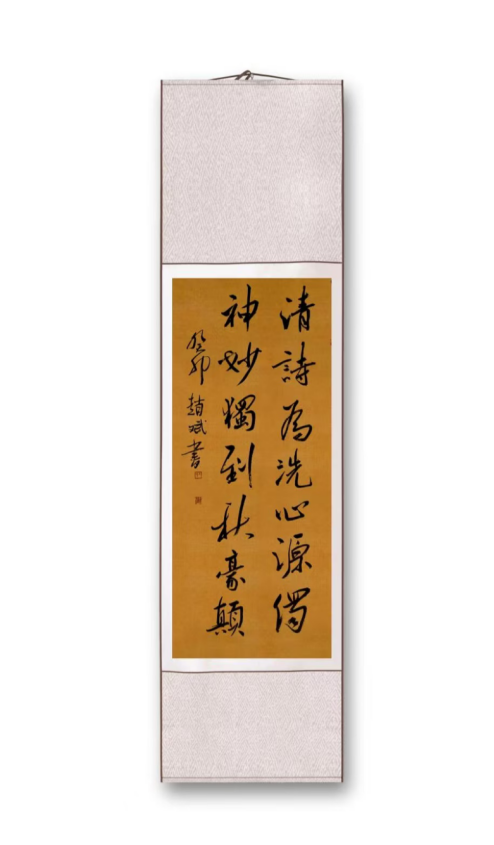 清詩為洗心源濁
神妙獨到秋豪顛
癸卯 趙斌書